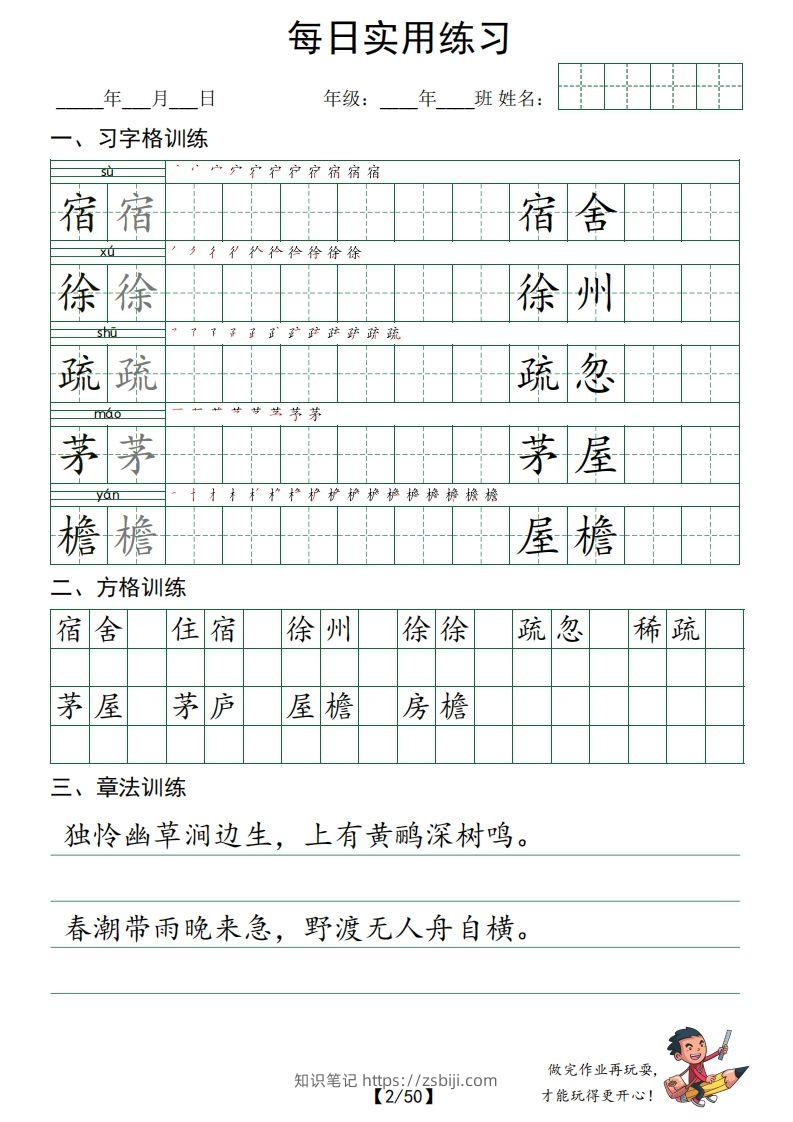 每日实用练习
_____年___月___日 年级：____年____班 姓名：
一、习字格训练
sù
宿 宿 宿 舍
xú
徐 徐 徐 州
shū
疏 疏 疏 忽
máo
茅 茅 茅 屋
yán
檐 檐 屋 檐
二、方格训练
宿 舍 住 宿 徐 州 徐 徐 疏 忽 稀 疏
茅 屋 茅 庐 屋 檐 房 檐
三、章法训练
独怜幽草涧边生，上有黄鹂深树鸣。
春潮带雨晚来急，野渡无人舟自横。
做完作业再玩耍，
才能玩得更开心！
知识笔记 https://zsbiji.com
【2/50】